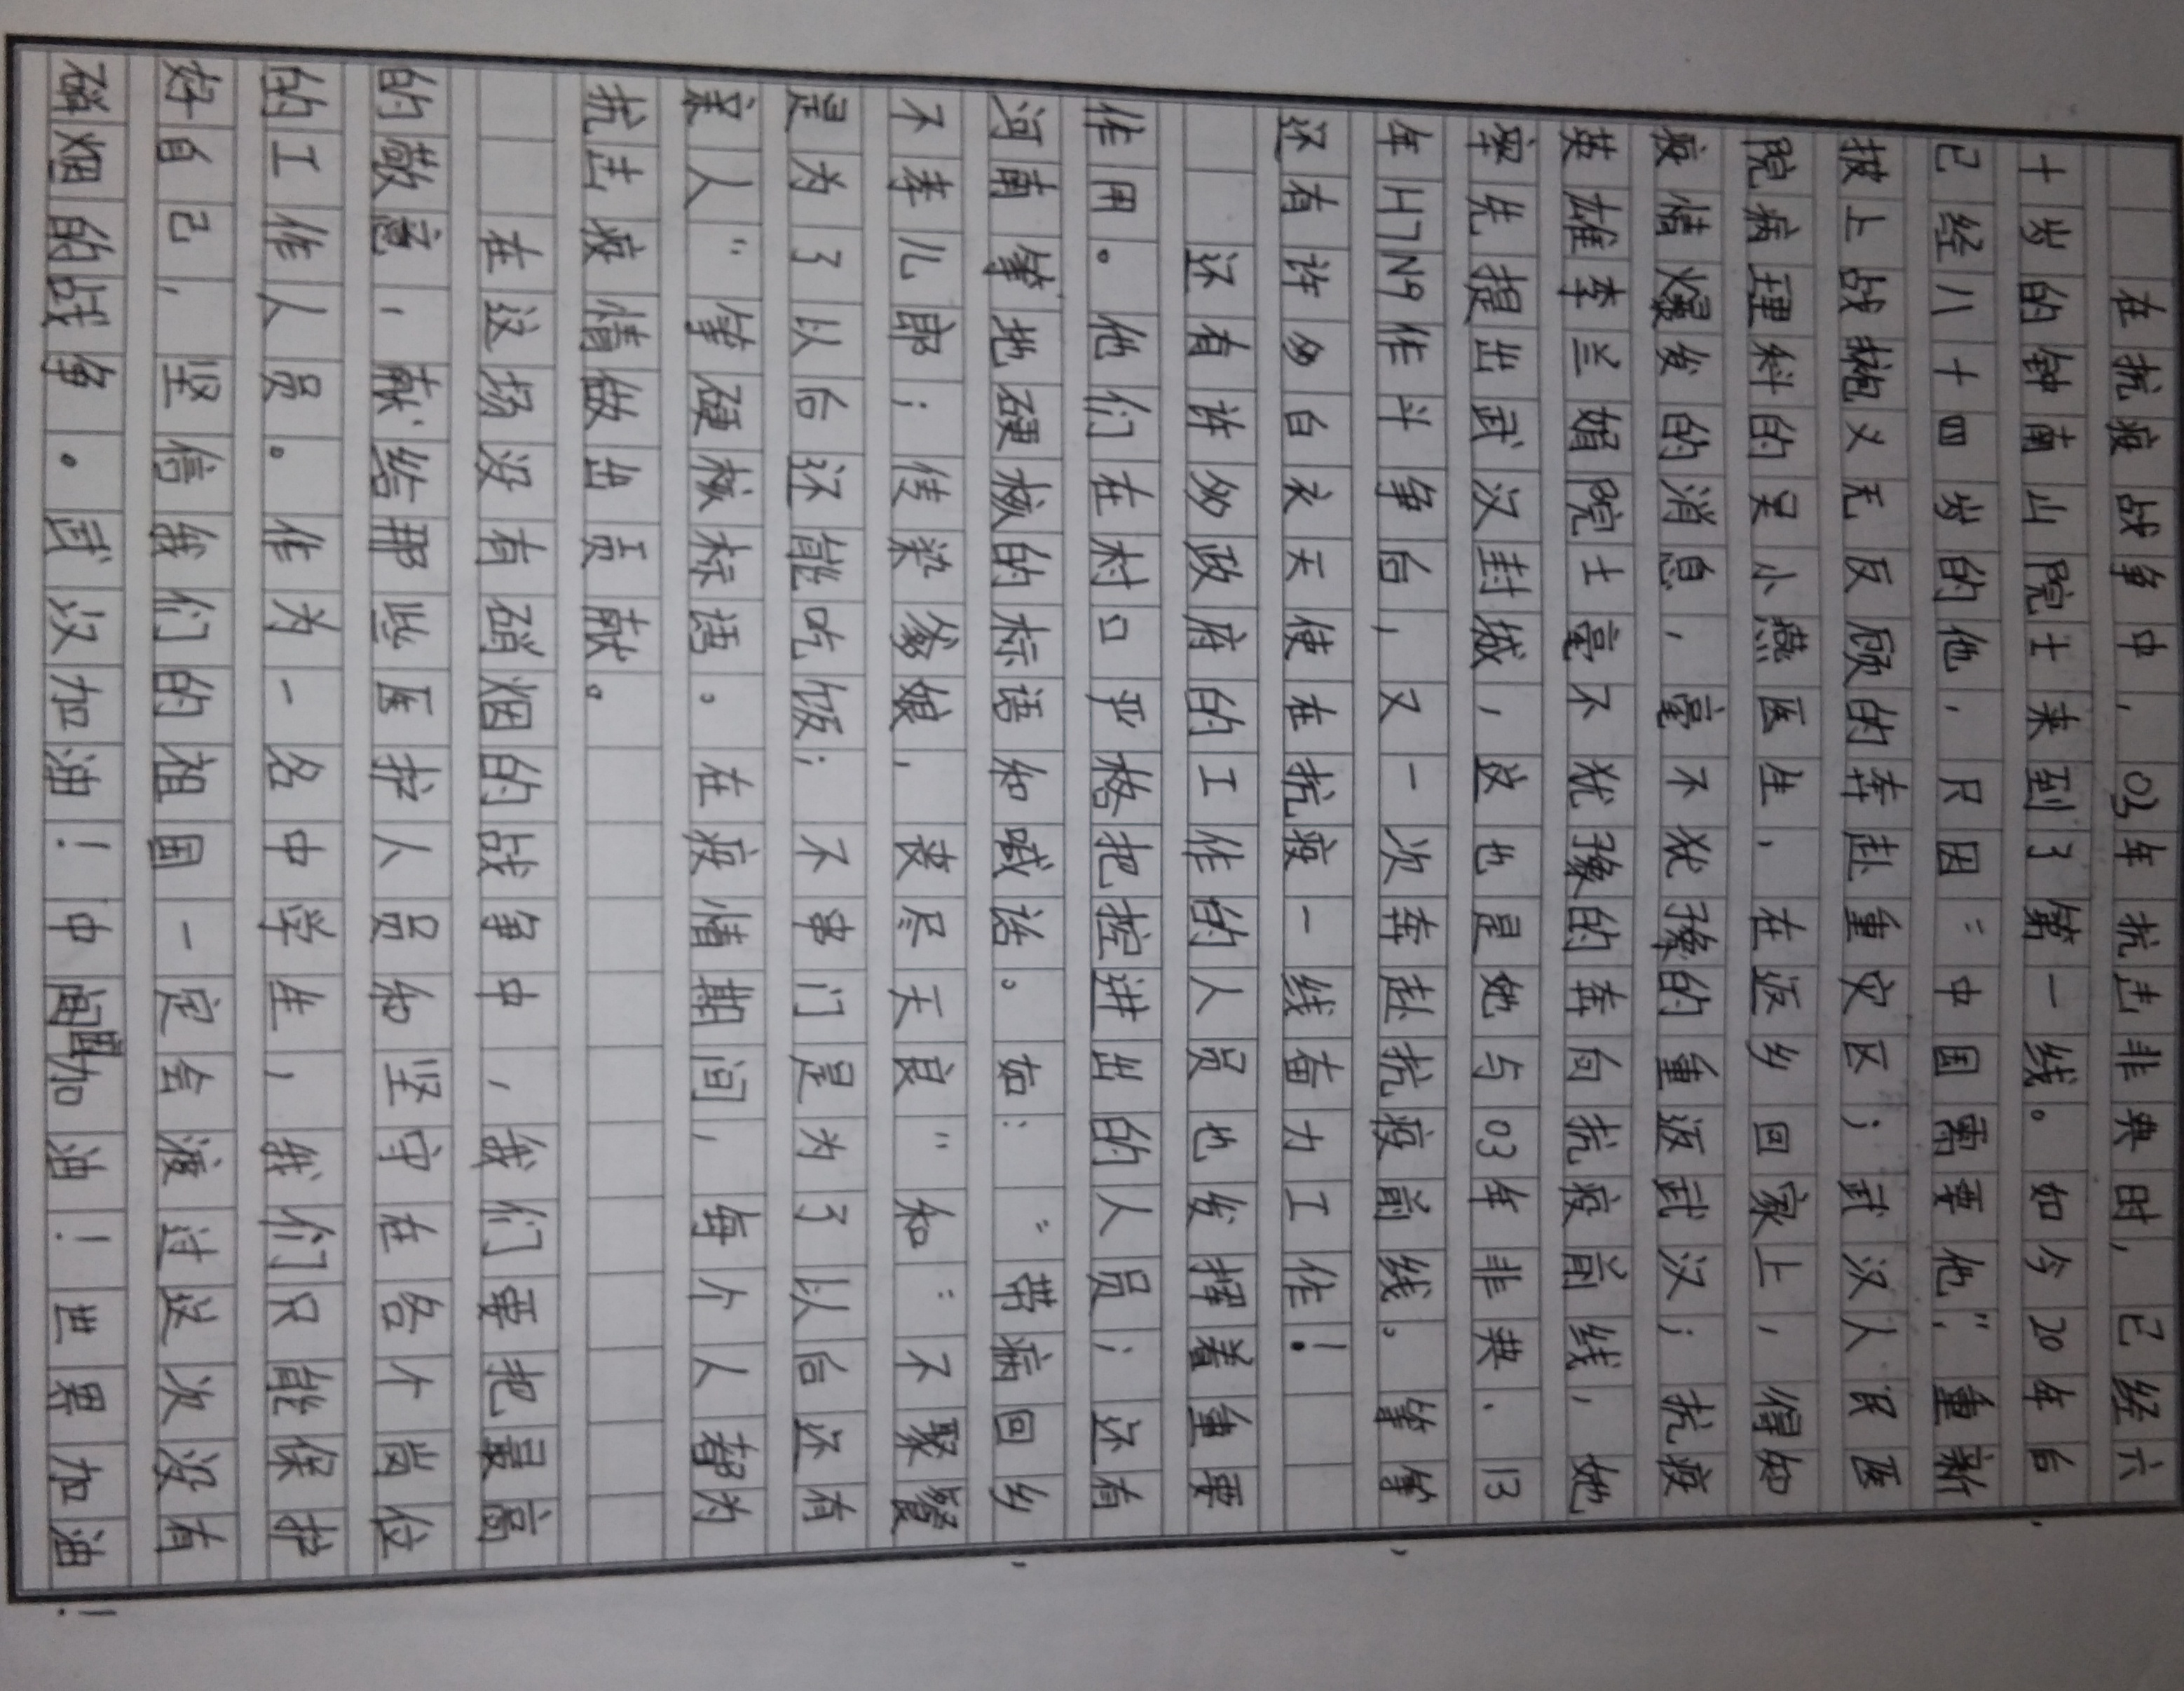 在抗疫战争中，03年抗击非典时，已经六
十岁的钟南山院士来到了第一线。如今20年后，
已经八十四岁的他，只因“中国需要他”，重新
披上战袍义无反顾的奔赴重灾区；武汉人民医
院病理科的吴小燕医生，在返乡回家上，得知
疫情爆发的消息，毫不犹豫的重返武汉；抗疫
英雄李兰娟院士毫不犹豫的奔向抗疫前线，她
率先提出武汉封城，这也是她与03年非典、13
年H7N9作斗争后，又一次奔赴抗疫前线。等等，
还有许多白衣天使在抗疫一线奋力工作！
还有许多政府的工作的人员也发挥着重要
作用。他们在村口严格把控进出的人员；还有
河南等地硬核的标语和喊话。如：“带病回乡，
不孝儿郎；传染爹娘，丧尽天良”和“不聚餐
是为了以后还能吃饭；不串门是为了以后还有
家人”等硬核标语。在疫情期间，每个人都为
抗击疫情做出贡献。
在这场没有硝烟的战争中，我们要把最高
的敬意，献给那些医护人员和坚守在各个岗位
的工作人员。作为一名中学生，我们只能保护
好自己，坚信我们的祖国一定会渡过这次没有
硝烟的战争。武汉加油！中国加油！世界加油！